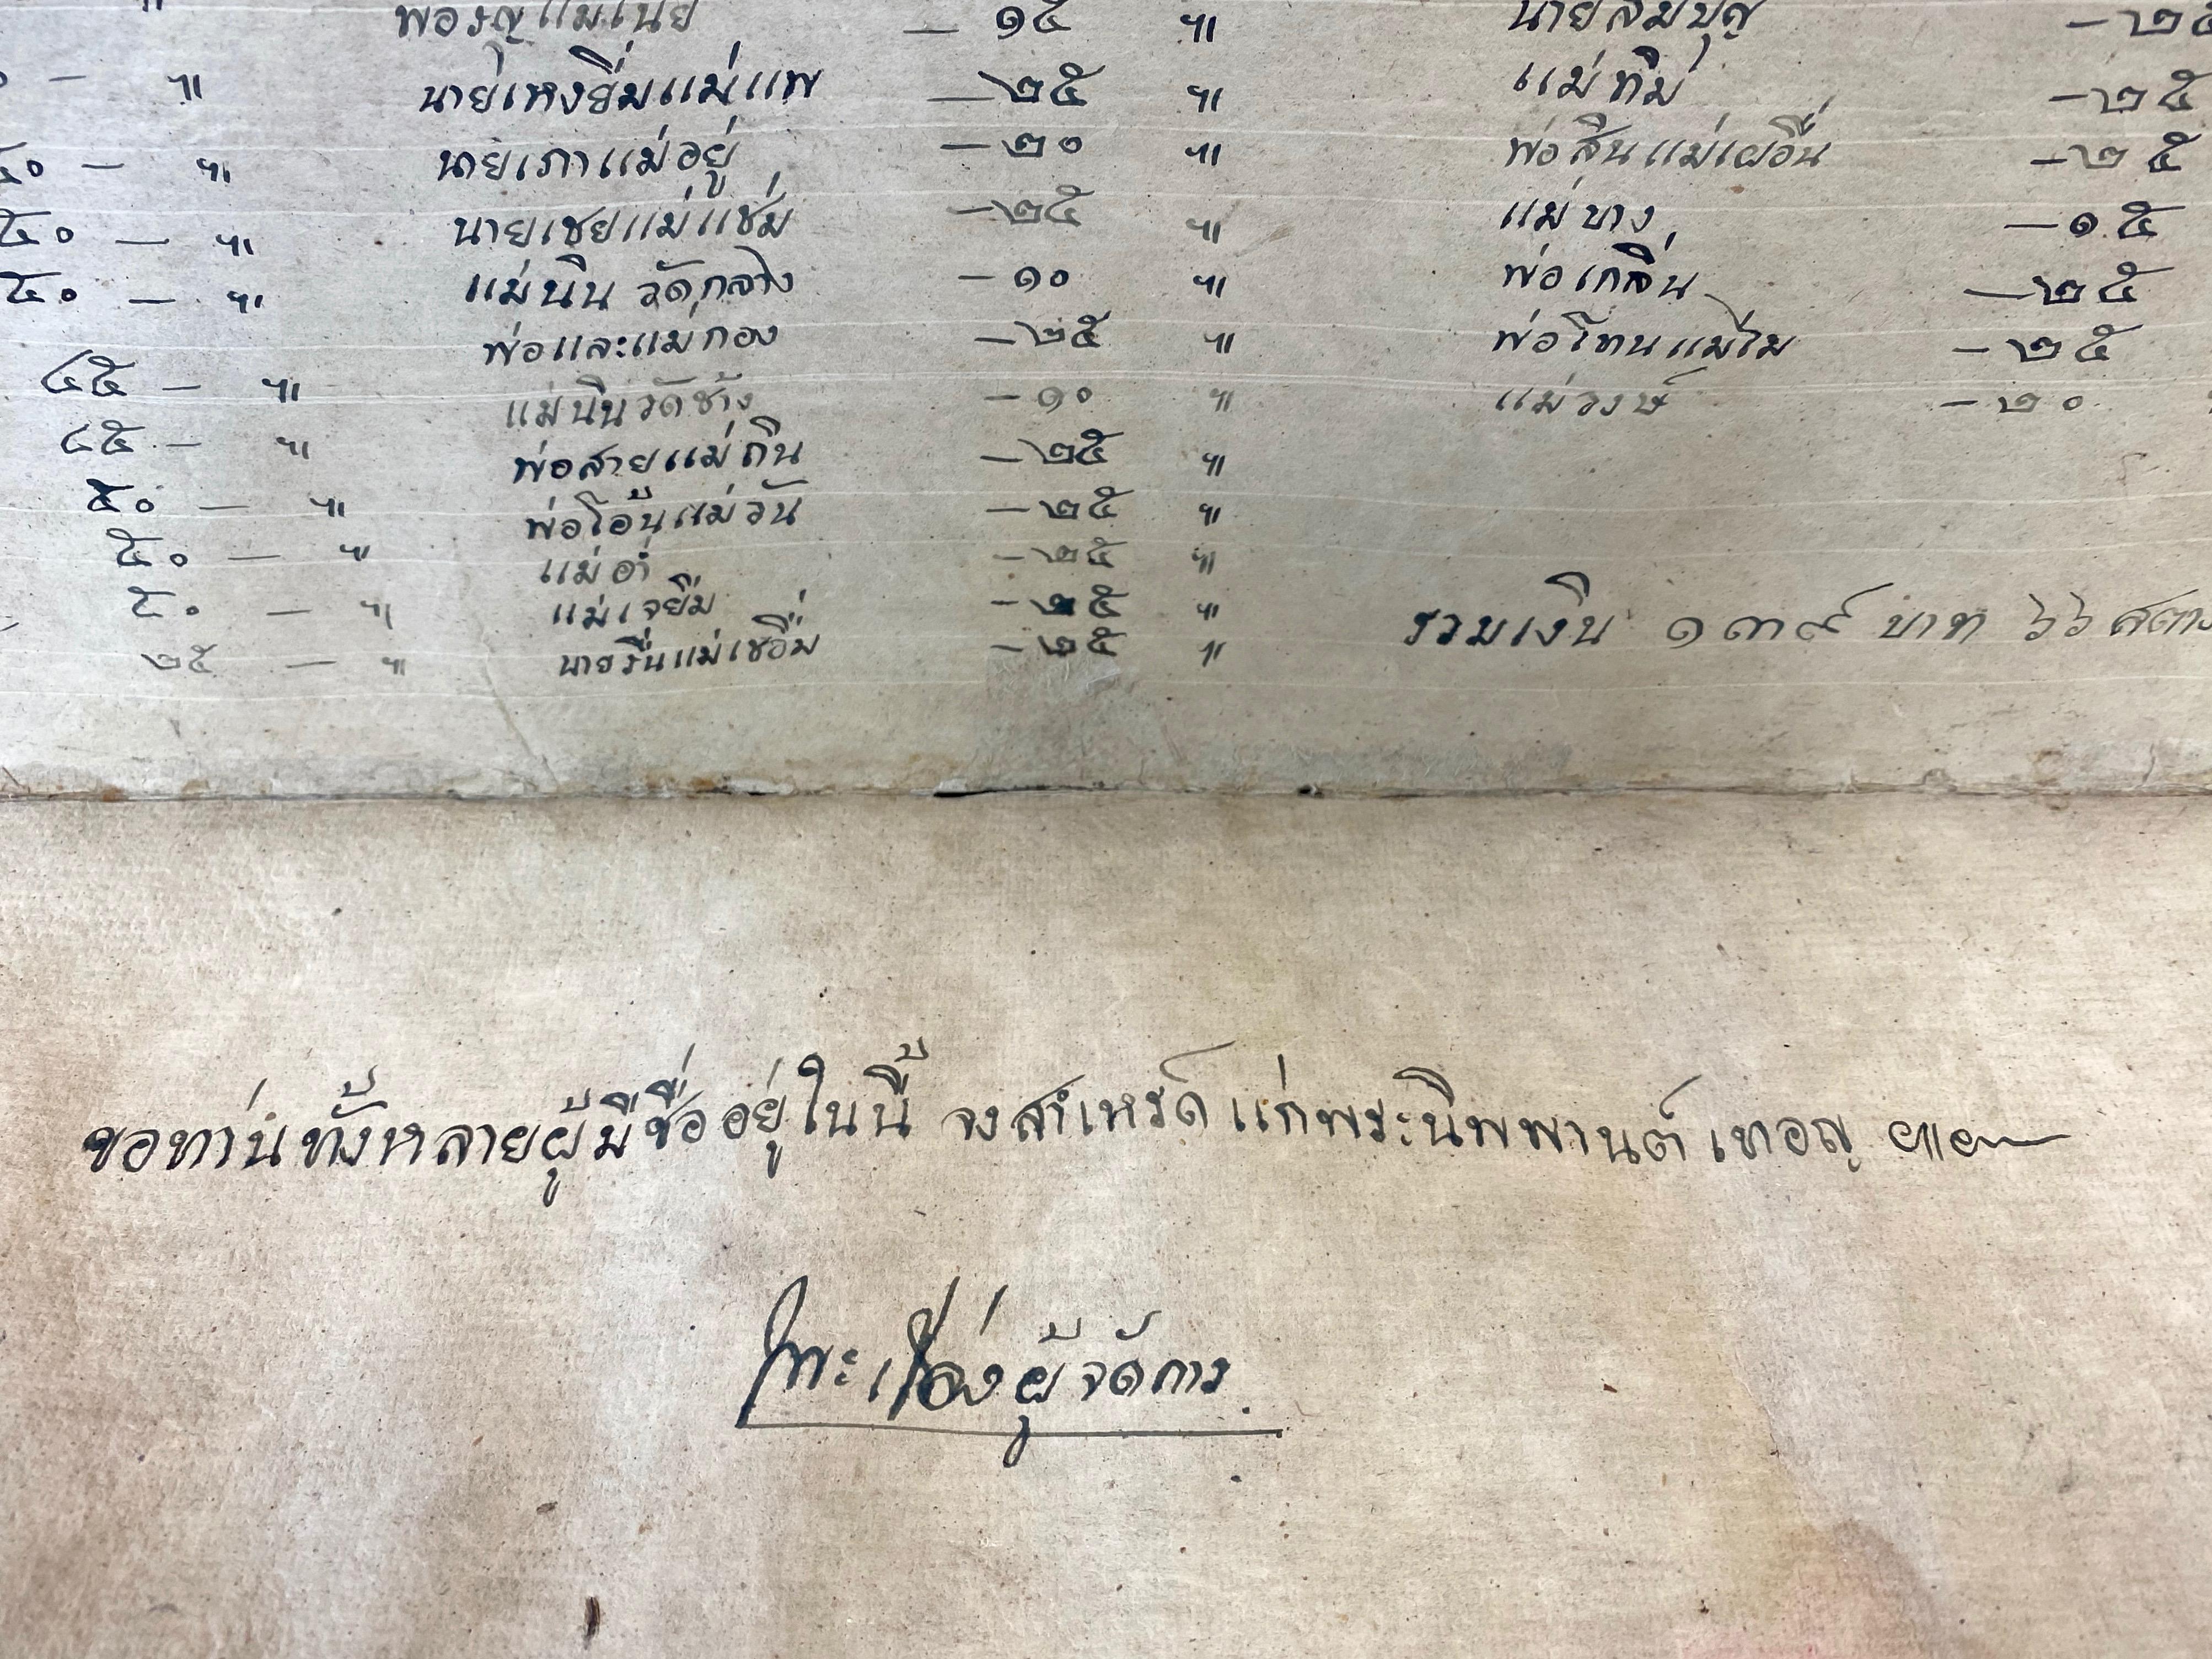 พ่อรญแม่เนย — ๑๕ " นายสมบุญ — ๒๕
— " นายเหงยิ่มแม่แพ — ๒๕ " แม่ทิม — ๒๕
๕๐ — " นายเภาแม่อยู่ — ๒๐ " พ่อสินแม่เผอื่น — ๒๕
๕๐ — " นายเชยแม่แช่ม — ๒๕ " แม่บาง — ๑๕
๕๐ — " แม่นิน วัดกลาง — ๑๐ " พ่อเกลิ่น — ๒๕
พ่อและแม่กอง — ๒๕ " พ่อโทนแม่ไม — ๒๕
๔๕ — " แม่นินวัดช้าง — ๑๐ " แม่วงษ์ — ๒๐
๔๕ — " พ่อสายแม่ถิน — ๒๕ "
๕๐ — " พ่อโอ้นแม่วัน — ๒๕ "
๕๐ — " แม่อ่ำ — ๒๕ "
๕๐ — " แม่เจยิ่ม — ๒๕ " รวมเงิน ๑๓๙ บาท ๖๖ สตาง
๒๕ — " นายรื่นแม่เชอื่ม — ๒๕ "
ขอท่านทั้งหลายผู้มีชื่ออยู่ในนี้ จงสำเหร็ด แก่พระนิพพานต์ เทอญ ฯ
พระเรื่องผู้จัดการ.